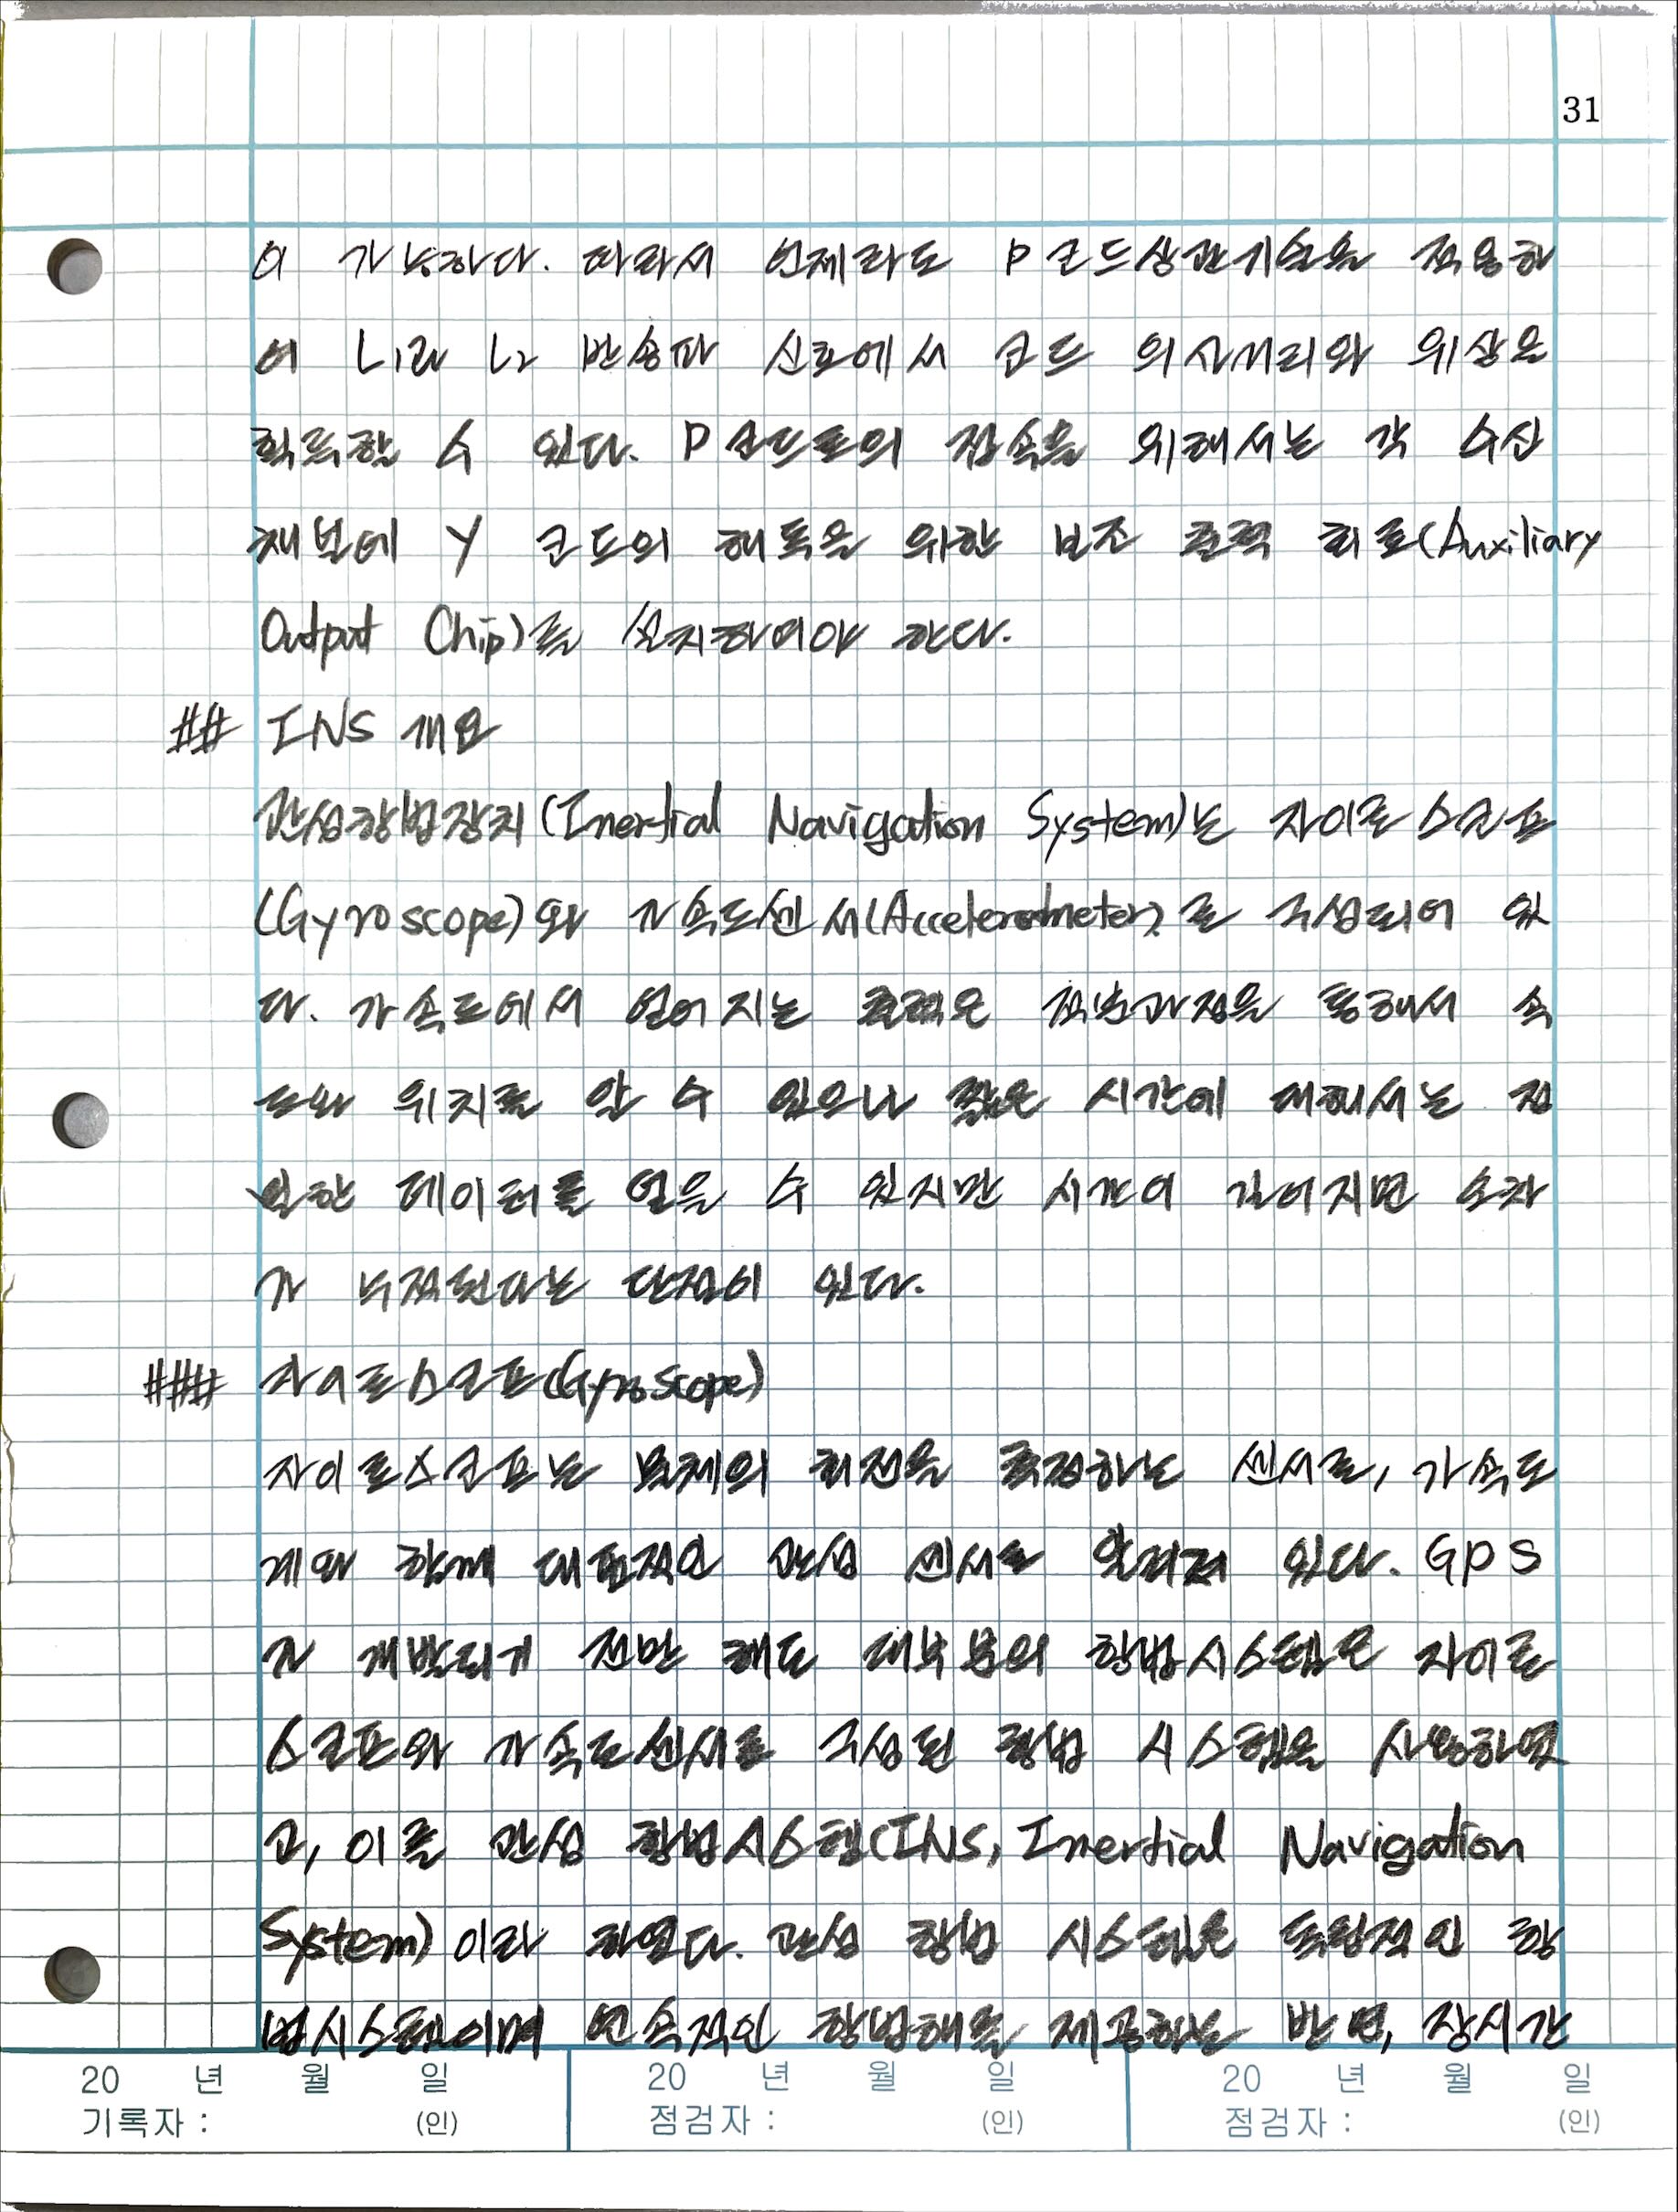 31
이 가능하다. 따라서 언제라도 P 코드상관기술을 적용하
여 L1과 L2 반송파 신호에서 코드 의사거리와 위상을
획득할 수 있다. P코드로의 접속을 위해서는 각 수신
채널에 Y 코드의 해독을 위한 보조 출력 회로(Auxiliary
Output Chip)를 설치하여야 한다.
## INS 개요
관성항법장치(Inertial Navigation System)는 자이로스코프
(Gyroscope)와 가속도센서(Accelerometer)로 구성되어 있
다. 가속도에서 얻어지는 출력은 적분과정을 통해서 속
도와 위치를 알 수 있으나 짧은 시간에 대해서는 정
밀한 데이터를 얻을 수 있지만 시간이 길어지면 오차
가 누적된다는 단점이 있다.
### 자이로스코프(Gyroscope)
자이로스코프는 물체의 회전을 측정하는 센서로, 가속도
계와 함께 대표적인 관성 센서로 알려져 있다. GPS
가 개발되기 전만 해도 대부분의 항법시스템은 자이로
스코프와 가속도센서로 구성된 항법 시스템을 사용하였
고, 이를 관성 항법시스템(INS, Inertial Navigation
System)이라 하였다. 관성 항법 시스템은 독립적인 항
법시스템이며 연속적인 항법해를 제공하는 반면, 장시간
20 년 월 일 20 년 월 일 20 년 월 일
기록자 : (인) 점검자 : (인) 점검자 : (인)